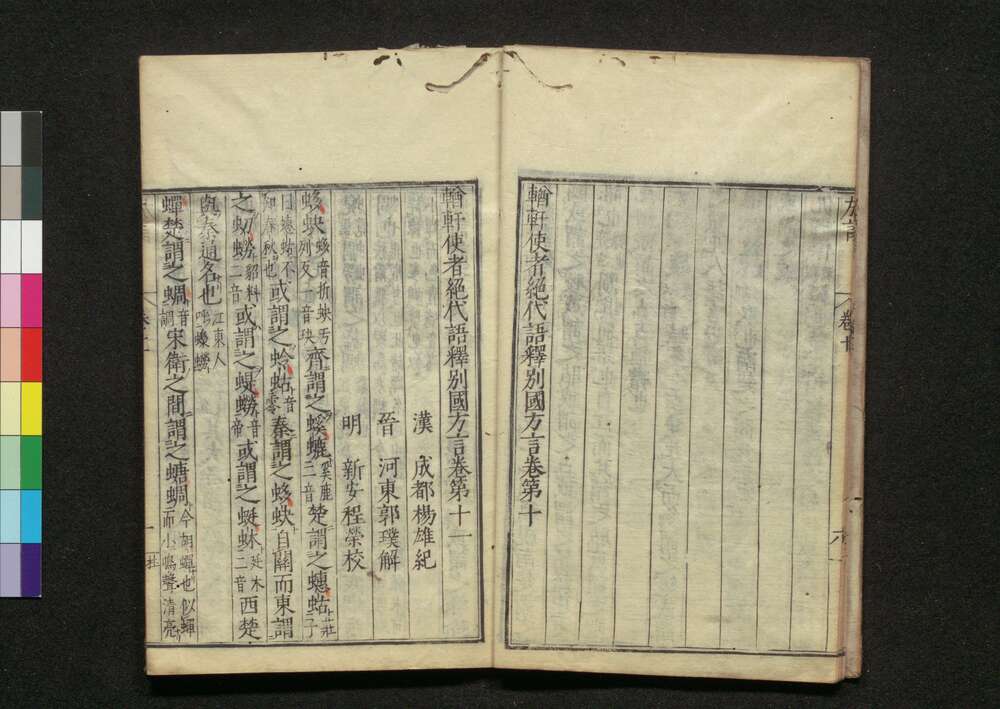 輶軒使者絕代語釋別國方言卷第十
輶軒使者絕代語釋別國方言卷第十一
漢　成都楊雄紀
晉　河東郭璞解
明　新安程榮校
蛥蚗蛥音折蚗于列反一音玦齊謂之螇螰奚鹿二音楚謂之蟪蛄莊子
曰蟪蛄不知春秋也或謂之蛉蛄音零秦謂之蛥蚗自關而東謂
之虭蟧貂料二音或謂之蝭蟧音帝或謂之蜓蚞廷木二音西楚
與秦通名也江東人呼蟧
蟬楚謂之蜩音調宋衛之間謂之螗蜩今胡蟬也似蟬而小鳴聲清亮